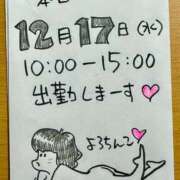 12月17日(水)
10:00-15:00
出勤しまーす♥
よろちんこ♥